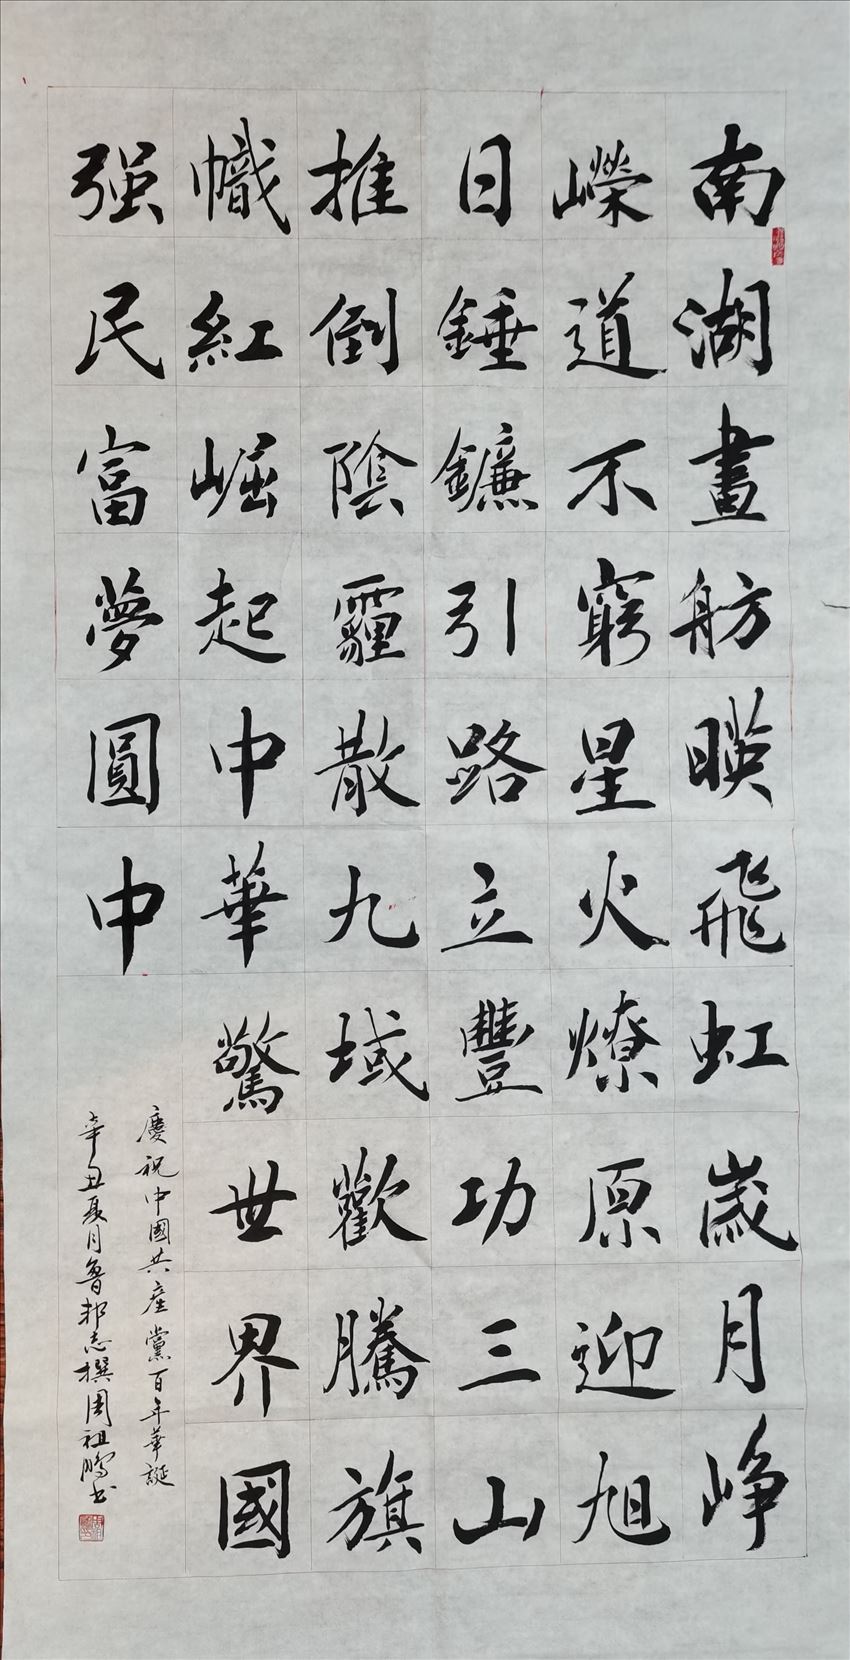 南湖畫舫暎飛虹歲月崢
嶸道不窮星火燎原迎旭
日錘鐮引路立豐功三山
推倒陰霾散九域歡騰旗
幟紅崛起中華驚世界國
强民富夢圓中
慶祝中國共產黨百年華誕
辛丑夏月魯邦志撰周祖鵬书